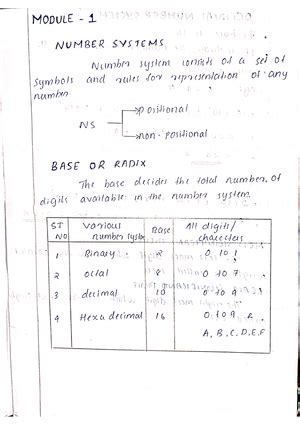 MODULE - 1
NUMBER SYSTEMS
Number system consists of a set of
symbols and rules for representation of any
number.
NS
positional
non-positional
BASE OR RADIX
The base decides the total number of
digits available in the number system.
ST NO Various number system Base All digits/ characters
1 Binary 2 0 to 1
2 octal 8 0 to 7
3 decimal 10 0 to 9
4 Hexa decimal 16 0 to 9 &
A, B, C, D, E, F